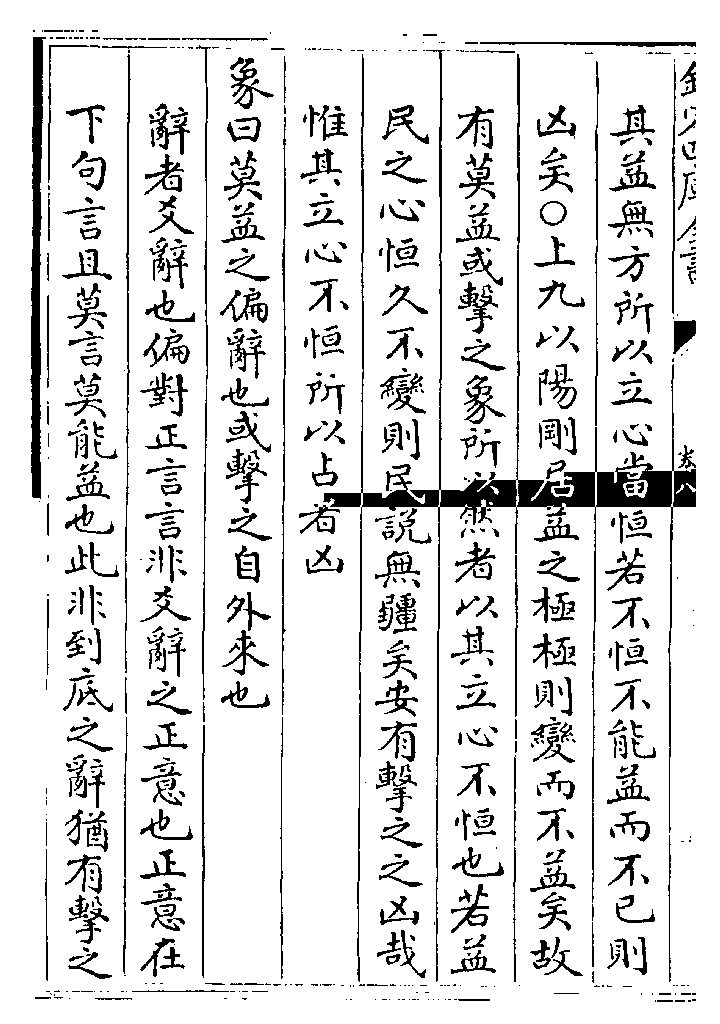 欽定四庫全書
卷八
其益無方所以立心當恒若不恒不能益而不已則
凶矣○上九以陽剛居益之極極則變而不益矣故
有莫益或擊之象所以然者以其立心不恒也若益
民之心恒久不變則民説無疆矣安有擊之之凶哉
惟其立心不恒所以占者凶
象曰莫益之偏辭也或擊之自外來也
辭者爻辭也偏對正言言非爻辭之正意也正意在
下句言且莫言莫能益也此非到底之辭猶有擊之